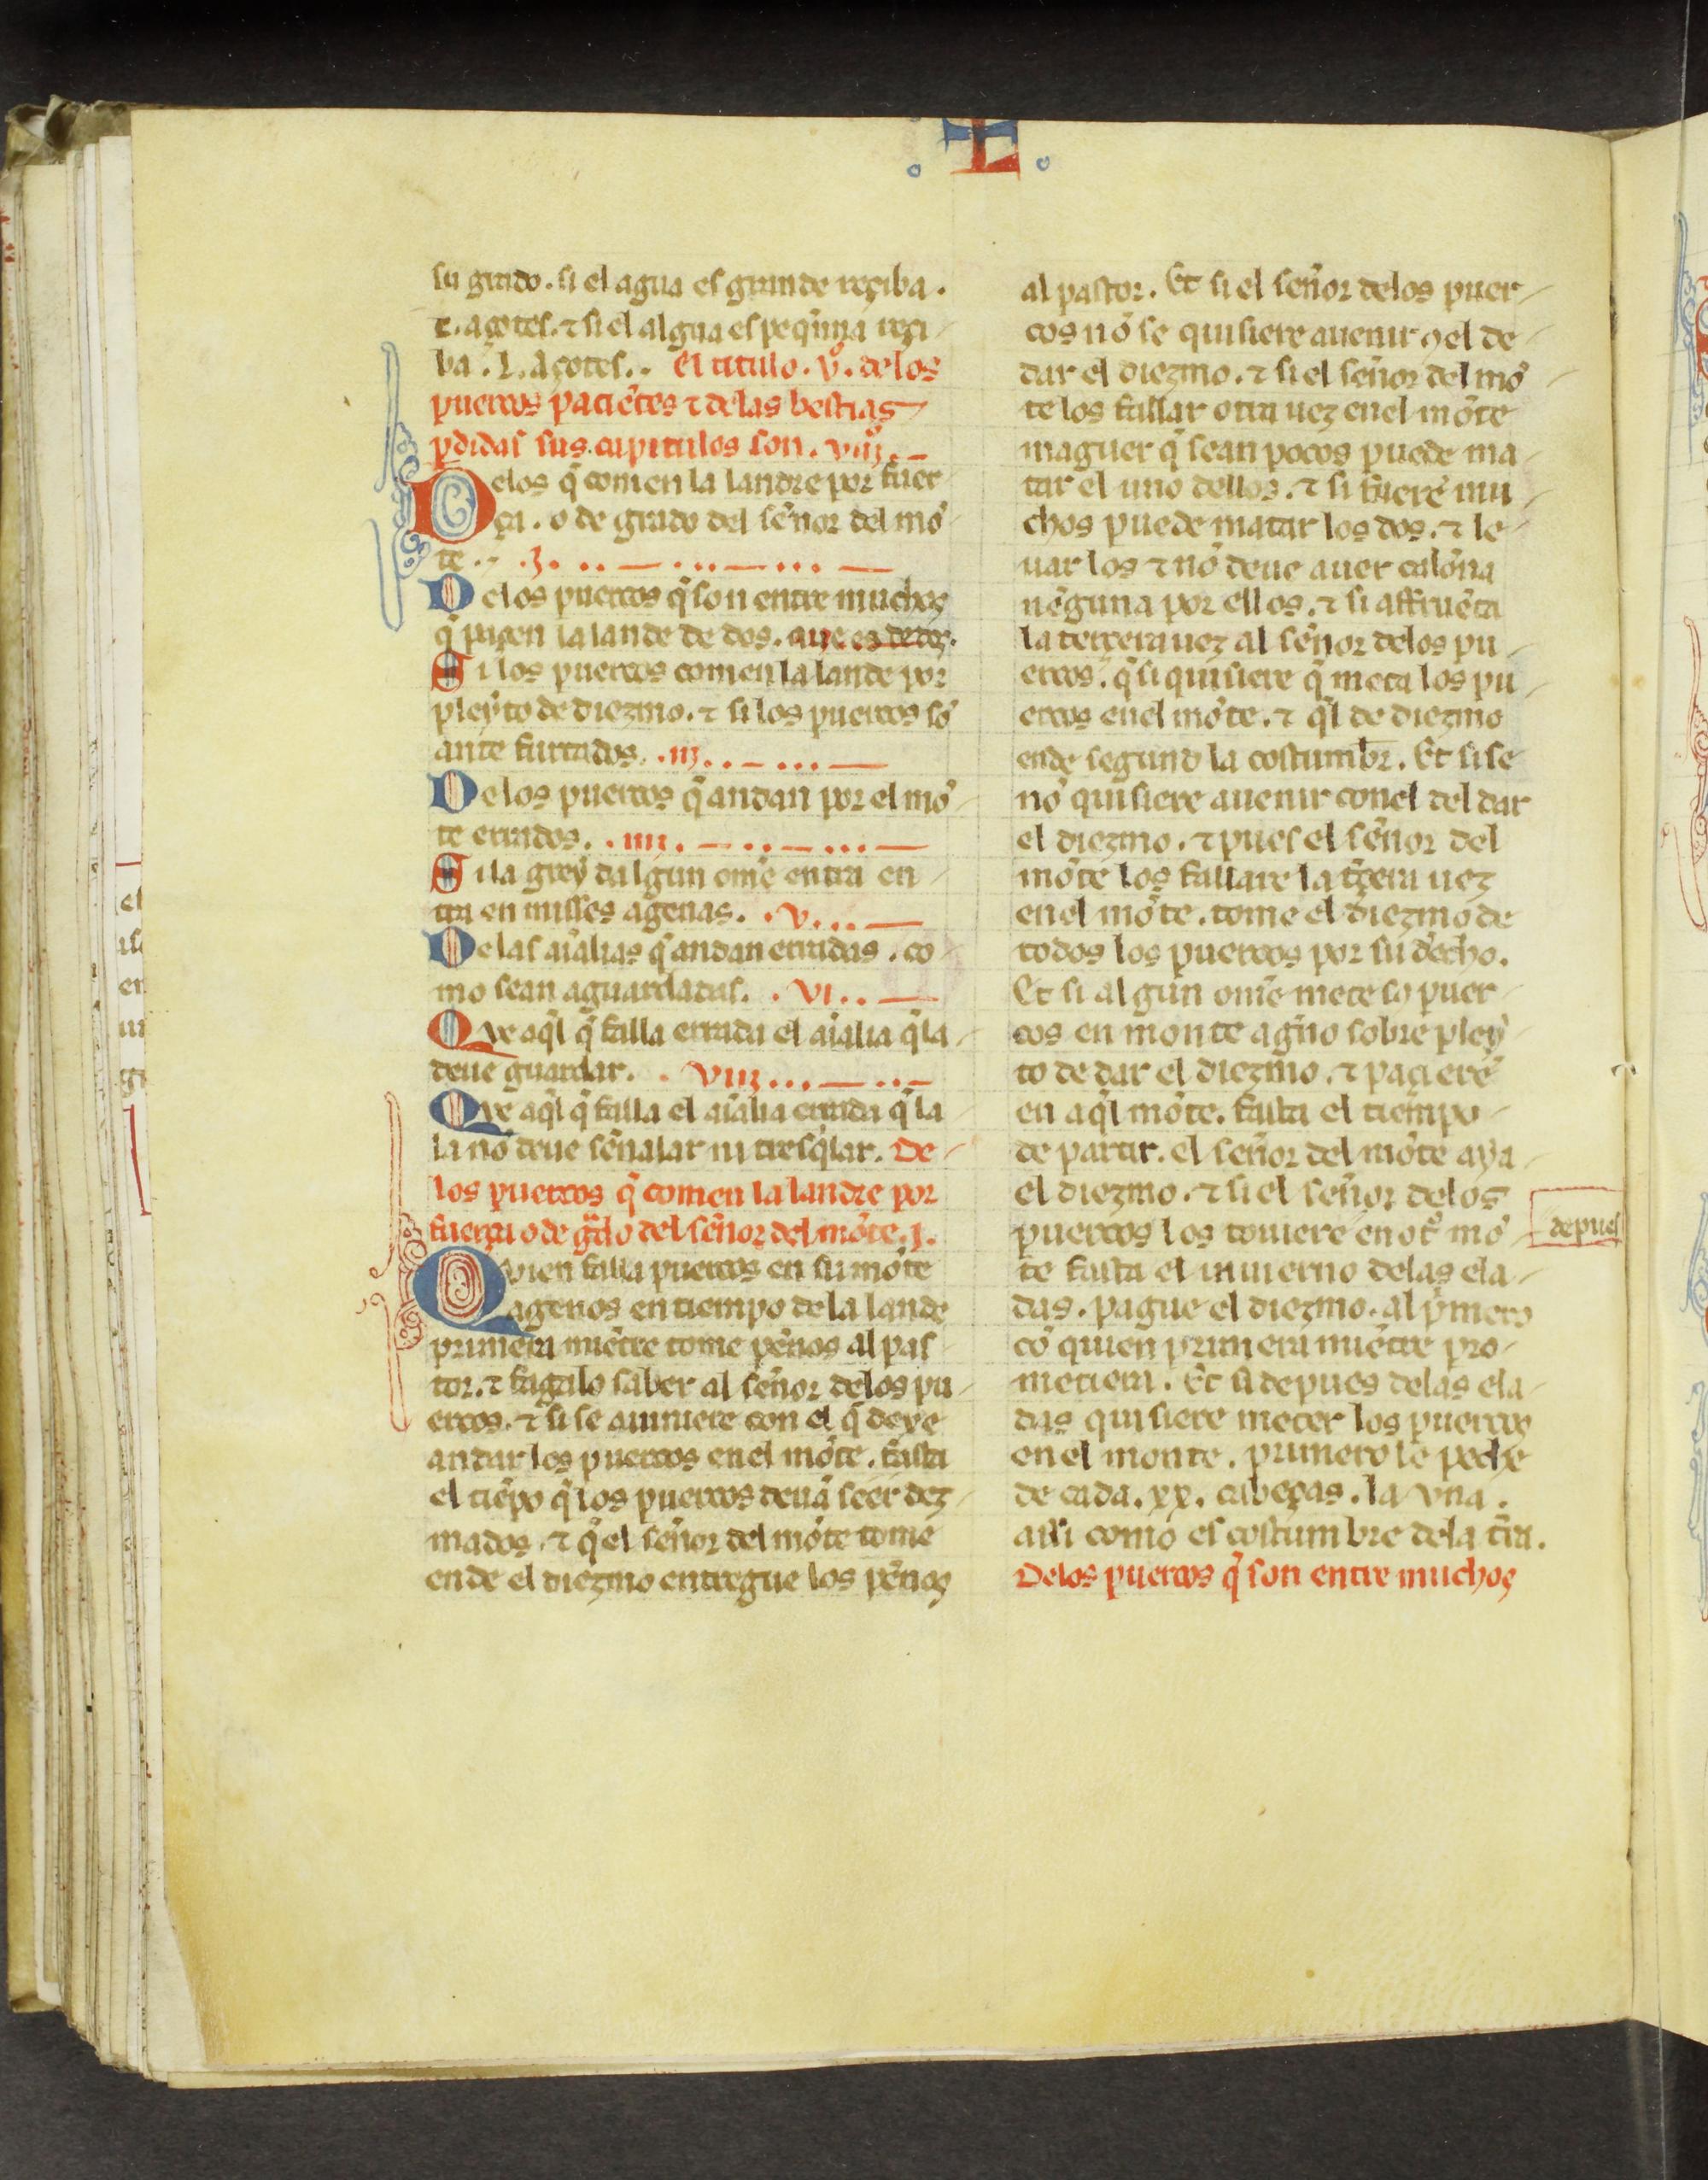 L
su grado. si el agua es grande reçiba.
C. açotes. ⁊ si el algua es peq̄nna reçi
ba. L. açotes.. El titulo. v̊. delos
puercos paciẽtes ⁊ delas bestias
ꝑdidas sus capitulos son. viij̊.
Delos q̄ comen la landre por fuer
ça. o de grado del sẽnor del mõ
te.. .j.
Delos puercos q̄ son entre muchos
q̄ pagen la lande de dos.
Si los puercos comen la lande por
pleyto de diezmo. ⁊ si los puercos sõ
ante furtados. .iij.
Delos puercos q̄ andan por el mõ
te errados. .iiij.
Si la grey dalgun om̃e entra en
tra en misses agenas. .v.
Delas aĩalias q̄ andan erradas. co
mo sean aguardadas. .vi.
Qve aq̄l q̄ falla errada el aĩalia q̄ la
deue guardar. . viij
Qve aq̄l q̄ falla el aĩalia errada q̄ la
la nõ deue sẽnalar ni tresq̄lar. De
los puercos q̄ comen la landre por
fuerça o de gᷓdo del sẽnor del mõte. j.
Qvien falla puercos en su mõte
agenos en tiempo de la lande
primera miẽtre tome pẽnos al pas
tor. ⁊ fagalo saber al sẽnor delos pu
ercos. ⁊ si se auiniere con el q̄ dexe
andar los puercos enel mõte. fasta
el tiẽpo q̄ los puercos deuã seer dez
mados. ⁊ q̄ el sẽnor del mõte tome
ende el diezmo entregue los pẽnos
al pastor. Et si el sẽnor delos puer
cos nõ se quisiere auenir ꝯel de
dar el diezmo. ⁊ si el sẽnor del mõ
te los fallar otra uez enel mõte
maguer q̄ sean pocos puede ma
tar el uno dellos. ⁊ si fuerẽ mu
chos puede matar los dos. ⁊ le
uar los ⁊ nõ deue auer calõna
nẽguna por ellos. ⁊ si affruẽta
la terçera uez al sẽnor delos pu
ercos. q̄ si quisiere q̄ meta los pu
ercos enel mõte. ⁊ q̄l de diezmo
ende segund la costumbr̃. Et si se
nõ quisiere auenir conel del dar
el diezmo. ⁊ pues el sẽnor del
mõte los fallare la tr̃çera uez
enel mõte. tome el diezmo de
todos los puercos por su dr̃cho.
Et si algun om̃e mete so puer
cos en monte agẽno sobre pley
to de dar el diezmo. ⁊ paçierẽ
en aq̄l mõte. fasta el tiempo
de partir. el sẽnor del mõte aya
el diezmo. ⁊ si el sẽnor delos
puercos los touiere en otr̊ mõ
te fasta el inuierno delas ela
das. pague el diezmo. al pͥmero
cõ quien primera miẽtre pro
metiera. Et si depues delas ela
das quisiere meter los puercos
enel monte. primero le peche
de cada. xx. cabeças. la vna.
assi como es costumbre dela tr̃ra.
Delos puercos q̄ son entre muchos
depues